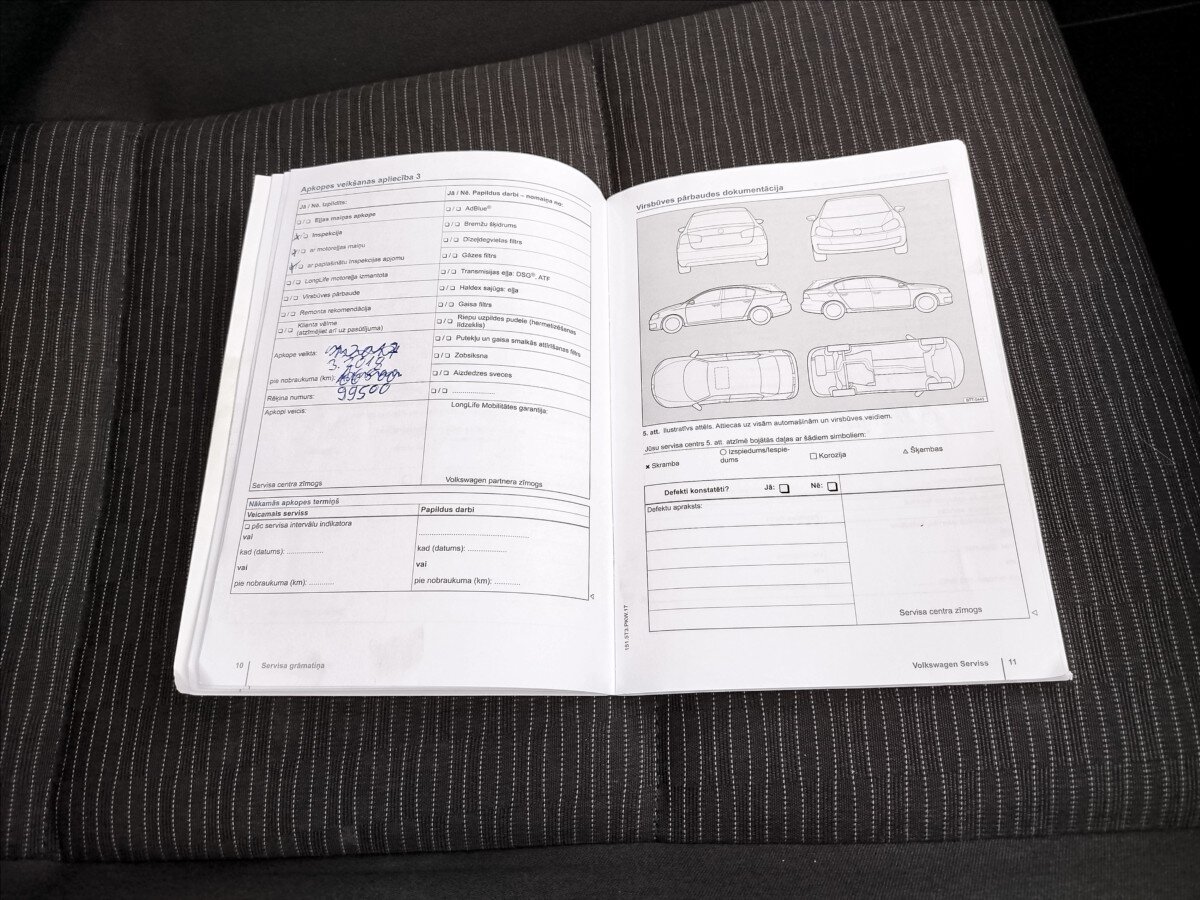 Apkopes veikšanas apliecība 3
Jā / Nē. Izpildīts:
❏ / ❏ Eļļas maiņas apkope
❏ / ❏ Inspekcija
❏ / ❏ ar motoreļļas maiņu
❏ / ❏ ar paplašinātu inspekcijas apjomu
❏ / ❏ LongLife motoreļļa izmantota
❏ / ❏ Virsbūves pārbaude
❏ / ❏ Remonta rekomendācija
❏ / ❏ Klienta vēlme
(atzīmējiet arī uz pasūtījuma)
Apkope veikta:
pie nobraukuma (km):
Rēķina numurs: 99500
Apkopi veicis:
Servisa centra zīmogs
Jā / Nē. Papildus darbi – nomaiņa no:
❏ / ❏ AdBlue®
❏ / ❏ Bremžu šķidrums
❏ / ❏ Dīzeļdegvielas filtrs
❏ / ❏ Gāzes filtrs
❏ / ❏ Transmisijas eļļa: DSG®, ATF
❏ / ❏ Haldex sajūgs: eļļa
❏ / ❏ Gaisa filtrs
❏ / ❏ Riepu uzpildes pudele (hermetizēšanas
līdzeklis)
❏ / ❏ Putekļu un gaisa smalkās attīrīšanas filtrs
❏ / ❏ Zobsiksna
❏ / ❏ Aizdedzes sveces
❏ / ❏ ......................
LongLife Mobilitātes garantija:
Volkswagen partnera zīmogs
Nākamās apkopes termiņš
Veicamais serviss
❏ pēc servisa intervālu indikatora
vai
kad (datums): ..................
vai
pie nobraukuma (km): ............
Papildus darbi
......................................
kad (datums): ...................
vai
pie nobraukuma (km): ............
10 Servisa grāmatiņa
Virsbūves pārbaudes dokumentācija
5. att. Ilustratīvs attēls. Attiecas uz visām automašīnām un virsbūves veidiem.
Jūsu servisa centrs 5. att. atzīmē bojātās daļas ar šādiem simboliem:
✖ Skramba
○ Izspiedums/Iespie-
dums
□ Korozija
△ Šķembas
Defekti konstatēti? Jā: ❏ Nē: ❏
Defektu apraksts:
Servisa centra zīmogs
151.5T3.PKW.17
Volkswagen Serviss 11